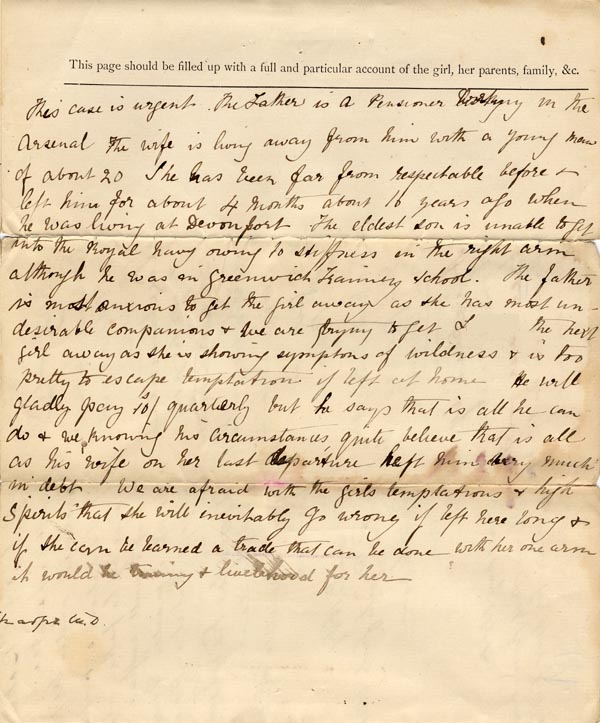 This page should be filled up with a full and particular account of the girl, her parents, family, &c.
This case is urgent. The Father is a Pensioner working in the
Arsenal the wife is living away from him with a young man
of about 20 She has been far from respectable before &
left him for about 4 months about 10 years ago when
he was living at Devonport The eldest son is unable to get
into the Royal Navy owing to stiffness in the right arm
although he was in Greenwich Training School. The father
is most anxious to get the girl away as she has most un-
desirable companions & we are trying to get L the next
girl away as she is showing symptons of wildness & is too
pretty to escape temptation if left at home He will
gladly pay quarterly but he says that is all he can
do & we knowing his circumstances quite believe that is all
as his wife on her last departure left him very much
in debt We are afraid with the girls temptations & high
Spirits that she will inevitably go wrong if left here long &
if she can be learned a trade that can be done with her one arm
it would be & livelihood for her
M.D.